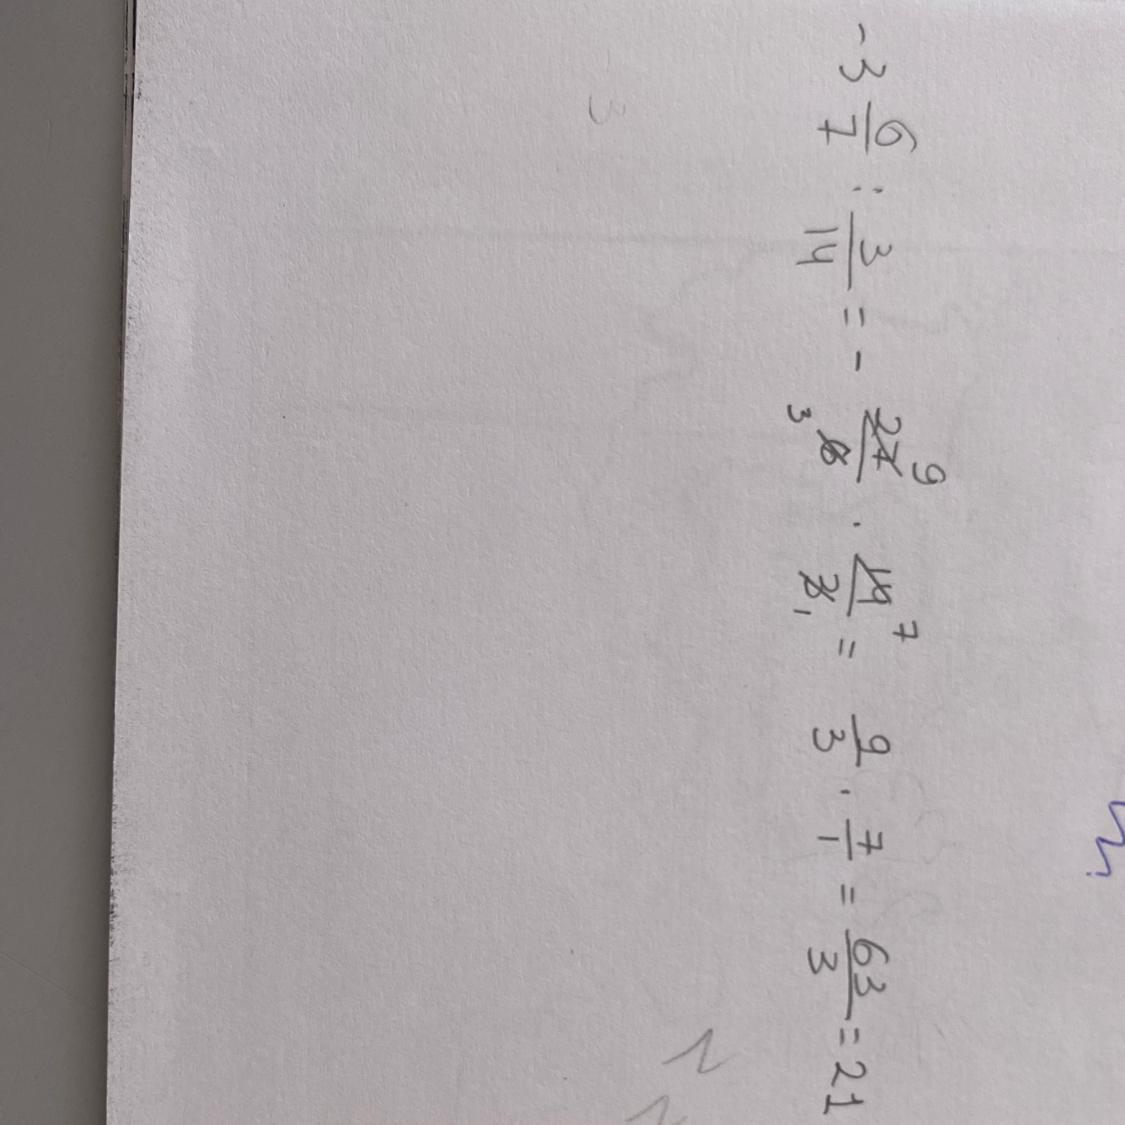 -3 6/7 : 3/14 = - 27/6 · 14/3 = 9/3 · 7/1 = 63/3 = 21